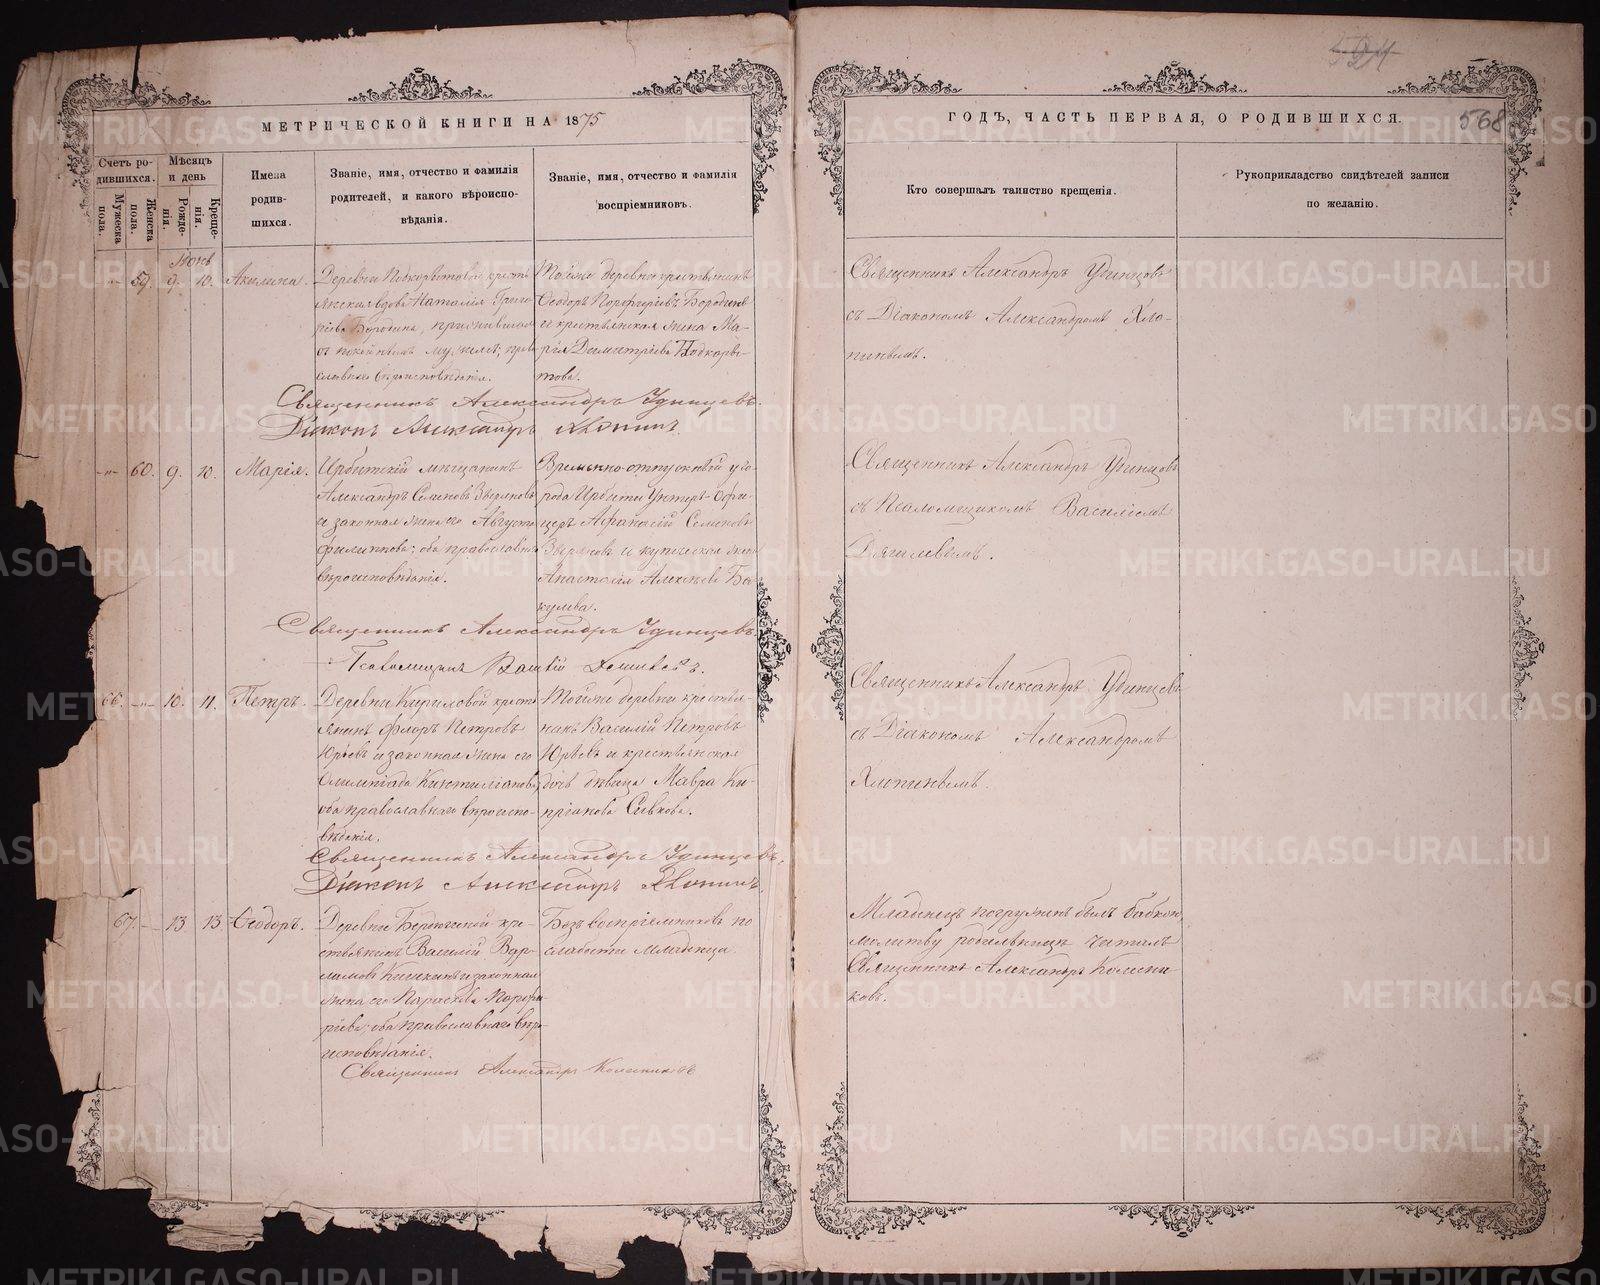 524
МЕТРИЧЕСКОЙ КНИГИ НА 1875
ГОДЪ, ЧАСТЬ ПЕРВАЯ, О РОДИВШИХСЯ.
568
Счетъ ро-
дившихся.
Мужеска
пола.
Женска
пола.
Мѣсяцъ
и день
Рожде-
нія.
Креще-
нія.
Имена
родив-
шихся.
Званіе, имя, отчество и фамилія
родителей, и какого вѣроиспо-
вѣданія.
Званіе, имя, отчество и фамилія
воспріемниковъ.
Кто совершалъ таинство крещенія.
Рукоприкладство свидѣтелей записи
по желанію.
59. 9. 10. Акилина.
Деревни
янская вдова Наталія Григо-
рьева Бородина, прижившая
съ покойнымъ мужемъ; право-
славнаго вѣроисповѣданія.
Тойже деревни крестьянинъ
Ѳеодоръ Порфирьевъ Бородинъ
и крестьянская жена Ма-
рія Димитріева
Священникъ Александръ Удинцевъ
съ Діакономъ Александромъ Хло-
пинымъ.
Священникъ Александръ Удинцевъ.
Діаконъ Александръ Хлопинъ.
60. 9. 10. Марія.
Ирбитскій мѣщанинъ
Александръ Семеновъ Звѣревъ
и законная жена его Августа
Филиппова; оба православнаго
вѣроисповѣданія.
Временно-отпускный у го-
рода Ирбити Унтеръ-Офи-
церъ Афанасій Семеновъ
и купеческая жена
Анастасія Алексѣева Ба-
кулева.
Священникъ Александръ Удинцевъ
съ Псаломщикомъ Василіемъ
Дягилевымъ.
Священникъ Александръ Удинцевъ.
Псаломщикъ Василій
66. 10. 11. Петръ.
Деревни Кириловой кресть
янинъ Флоръ Петровъ
Юрьевъ и законная жена его
Олимпіада
оба православнаго вѣроиспо-
вѣданія.
Тойже деревни крестья-
нинъ Василій Петровъ
Юрьевъ и крестьянская
дочь дѣвица Мавра Ки-
пріанова Сивкова.
Священникъ Александръ Удинцевъ
съ Діакономъ Александромъ
Хлопинымъ.
Священникъ Александръ Удинцевъ.
Діаконъ Александръ Хлопинъ.
67. 13 13 Ѳеодоръ.
Деревни кре-
стьянинъ Василій Вар-
ламовъ и законная
жена его Параскева Порфи-
рьева; оба православнаго вѣро-
исповѣданія.
Безъ воспріемниковъ по
слабости младенца.
Младенецъ погруженъ былъ бабкою,
молитву родильницѣ читалъ
Священникъ Александръ Колесни-
ковъ.
Священникъ Александръ Колесниковъ
METRIKI.GASO-URAL.RU